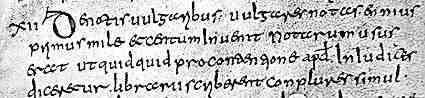 xii De notis uulgaribus . uulgares notas ennius
primus mile et centum inuenit notarum usus
erat ut quidquid pro apd. In Iudices
diceretur . librarii scriberent conplures simul .